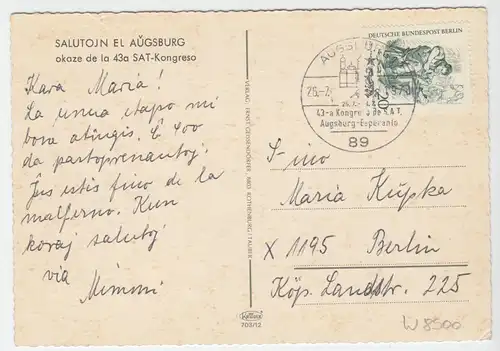 SALUTOJN EL AŬGSBURG
okaze de la 43a SAT-Kongreso
Kara Maria!
La unua etapo mi
bone atingis. Ĉ 400
da partoprenantoj.
Ĵus estis fino de la
malfermo. Kun
koraj salutoj
via
Mimmi
VERLAG ERNST GEISSENDÖRFER, 8803 ROTHENBURG/TAUBER
Kolibri
703/12
DEUTSCHE BUNDESPOST BERLIN
AUGSBURG
43-a Kongreso de S.A.T.
Augsburg-Esperanto
89
F-ino
Maria Kupka
X 1195 Berlin
Köp. Landstr. 225
W 8500